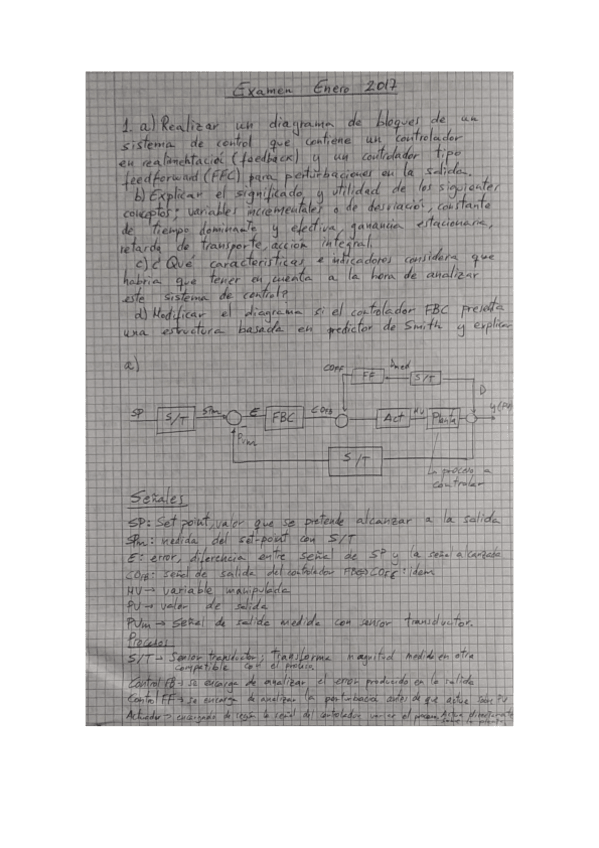 Examen Enero 2017
1. a) Realizar un diagrama de bloques de un
sistema de control que contiene un controlador
en realimentación (feedback) y un controlador tipo
feedforward (FFC) para perturbaciones en la salida.
b) Explicar el significado y utilidad de los siguientes
conceptos: variables incrementales o de desviación, constante
de tiempo dominante y efectiva, ganancia estacionaria,
retardo de transporte, acción integral.
c) ¿Qué características e indicadores considera que
habría que tener en cuenta a la hora de analizar
este sistema de control?
d) Modificar el diagrama si el controlador FBC presenta
una estructura basada en predictor de Smith y explicar
a)
COFF FF Dmed S/T D
SP S/T SPm E FBC COFB Act MV Planta y(PV)
PVm
S/T
La proceso a
controlar
Señales
SP: Set point, valor que se pretende alcanzar a la salida
SPm: medida del set-point con S/T
E: error, diferencia entre señal de SP y la señal alcanzada
COFB: señal de salida del controlador FB COFF: idem
MV → variable manipulada
PV → valor de salida
PVm → Señal de salida medida con sensor transductor.
Procesos
S/T → Sensor transductor; transforma magnitud medida en otra
compatible con el proceso.
Control FB → se encarga de analizar el error producido en la salida
Control FF → se encarga de analizar la perturbación antes de que actue sobre PV
Actuador → encargado de según la señal del controlador variar el proceso. Actua directamente